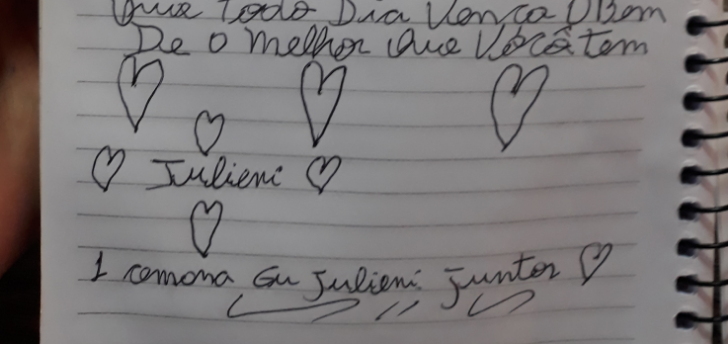 Que Todo Dia Vença O Bem
De o melhor Que Vôcâ tem
Julieni
1 comona Gu Julieni Juntor